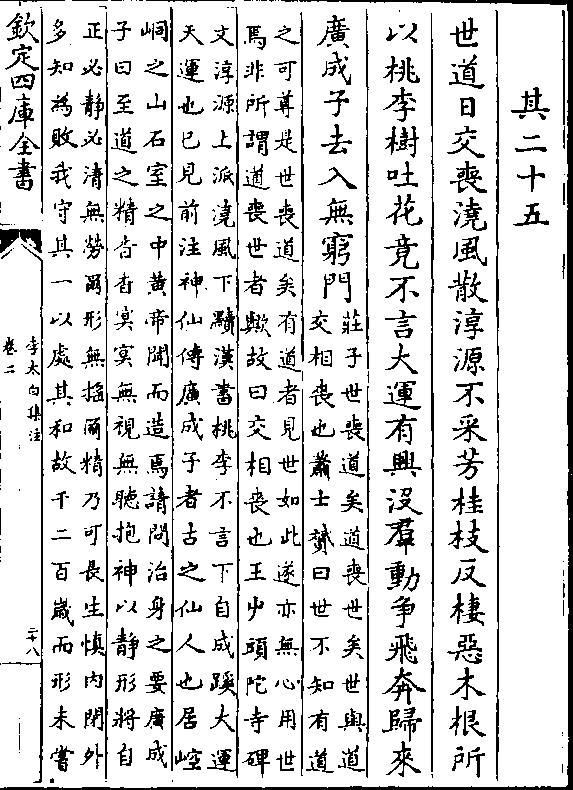 其二十五
世道日交喪澆風散淳源不采芳桂枝反棲惡木根所
以桃李樹吐花竟不言大運有興没羣動争飛奔歸來
廣成子去入無窮門
莊子世喪道矣道喪世矣世與道
交相喪也蕭士贇曰世不知有道
之可尊是世喪道矣有道者見世如此遂亦無心用世
焉非所謂道喪世者歟故曰交相喪也王屮頭陀寺碑
文淳源上派澆風下黷漢書桃李不言下自成蹊大運
天運也已見前注神仙傳廣成子者古之仙人也居崆
峒之山石室之中黄帝聞而造焉請問治身之要廣成
子曰至道之精杳杳冥冥無視無聽抱神以靜形將自
正必靜必清無勞爾形無摇爾精乃可長生慎内閉外
多知為敗我守其一以處其和故千二百嵗而形未嘗
欽定四庫全書
李太白集注
卷二
二十八